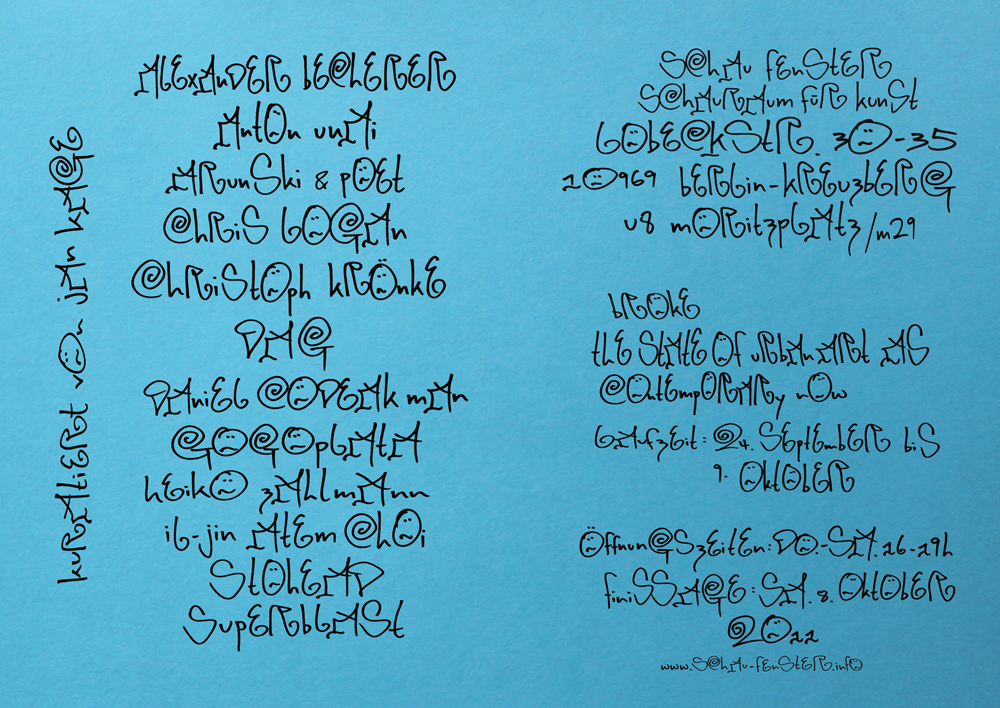 kuratiert von Jan Kage
Alexander Becherer
Anton Unai
Arunski & Poet
Chris Logan
Christoph Krönke
DAG
Daniel Codeak Man
Gogoplata
Heiko Zahlmann
Il-Jin Atem Choi
Stohead
Superblast
Schau Fenster
Schauraum für Kunst
Lobeckstr. 30-35
10969 Berlin-Kreuzberg
U8 Moritzplatz/M29
Broke
The State of Urban Art as
Contemporary Now
Laufzeit: 24. September bis
9. Oktober
Öffnungszeiten: Do.-Sa. 16-19h
Finissage: Sa. 8. Oktober
2022
www.schau-fenster.info